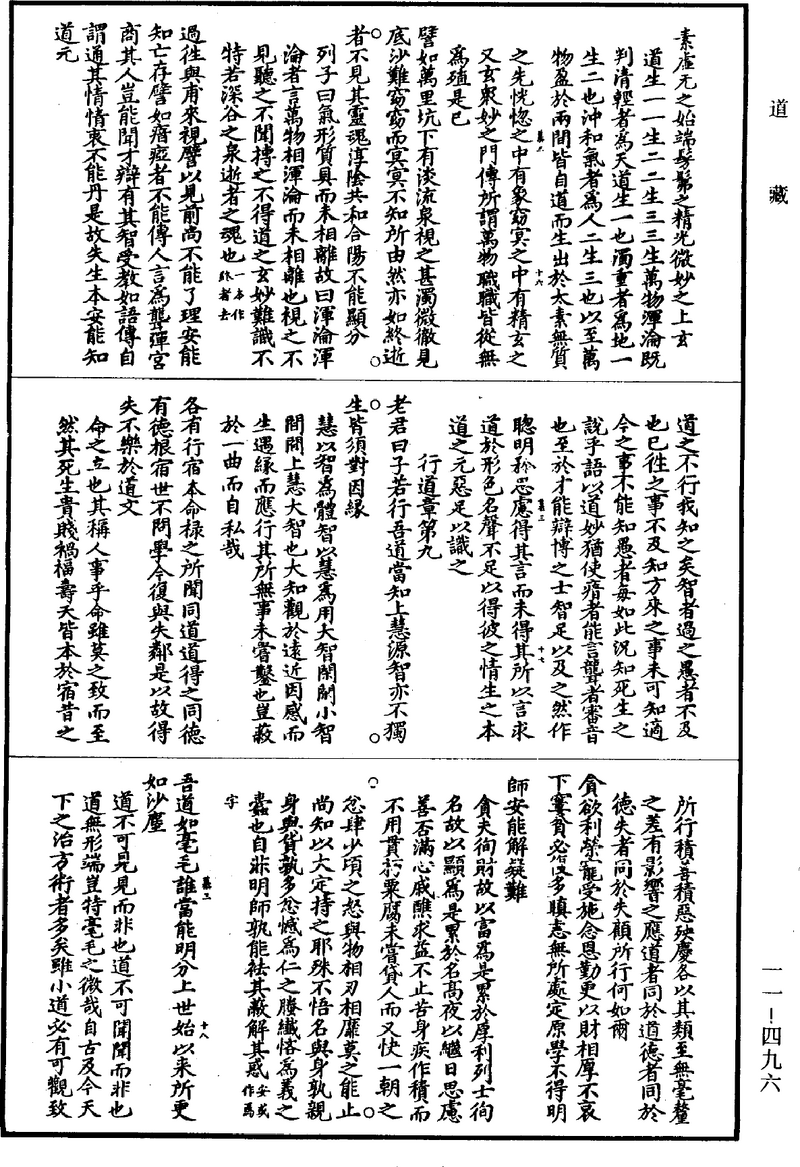 道藏
素虛无之始端髣髴之精光微妙之上玄
道生一一生二二生三三生萬物渾淪既
判清輕者為天道生一也濁重者為地一
生二也沖和氣者為人二生三也以至萬
物盈於兩間皆自道而生出於太素無質
之先恍惚之中有象窈冥之中有精玄之
又玄衆妙之門傳所謂萬物職職皆從無
為殖是已
譬如萬里坑下有淡流泉視之甚濁微徹見
底沙難窈窈而冥冥不知所由然亦如終逝
者不見其靈魂淳陰共和合陽不能顯分
列子曰氣形質具而未相離故曰渾淪渾
淪者言萬物相渾淪而未相離也視之不
見聽之不聞摶之不得道之玄妙難識不
特若深谷之泉逝者之魂也一本作終者去
過徃與甫來視譬以見前尚不能了理安能
知亡存譬如瘖瘂者不能傳人言為聾彈宮
商其人豈能聞才辯有其智受教如語傳自
謂通其情情衷不能丹是故失生本安能知
道元
道之不行我知之矣智者過之愚者不及
也已徃之事不及知方來之事未可知適
今之事不能知愚者每如此況知死生之
說乎語以道妙猶使瘖者能言聾者審音
也至於才能辯博之士智足以及之然作
聰明矜思慮得其言而未得其所以言求
道於形色名聲不足以得彼之情生之本
道之元惡足以識之
行道章第九
老君曰子若行吾道當知上慧源智亦不獨
生皆須對因緣
慧以智為體智以慧為用大智閑閑小智
間間上慧大智也大知觀於遠近因感而
生遇緣而應行其所無事未嘗鑿也豈蔽
於一曲而自私哉
各有行宿本命祿之所聞同道道得之同德
有德根宿世不問學今復與失鄰是以故得
失不樂於道文
命之立也其稱人事乎命雖莫之致而至
然其死生貴賤禍福壽夭皆本於宿昔之
所行積善積惡殃慶各以其類至無毫釐
之差有影響之應道者同於道德者同於
德失者同於失顧所行何如爾
貪欲利榮寵受施念恩勤更以財相厚不哀
下窶貧必復多瞋恚無所處定原學不得明
師安能解疑難
貪夫徇財故以富為是累於厚利列士徇
名故以顯為是累於名高夜以繼日思慮
善否滿心戚醮求益不止苦身疾作積而
不用貫朽粟腐未嘗貸人而又快一朝之
忿肆少頃之怒與物相刃相靡莫之能止
尚知以大定持之耶殊不悟名與身孰親
身與貨孰多忿憾為仁之螣纎悋為義之
蠹也自非明師孰能祛其蔽解其惑安或作為
字
吾道如毫毛誰當能明分上世始以來所更
如沙塵
道不可見見而非也道不可聞聞而非也
道無形端豈特毫毛之微哉自古及今天
下之治方術者多矣雖小道必有可觀致
一一—四九六